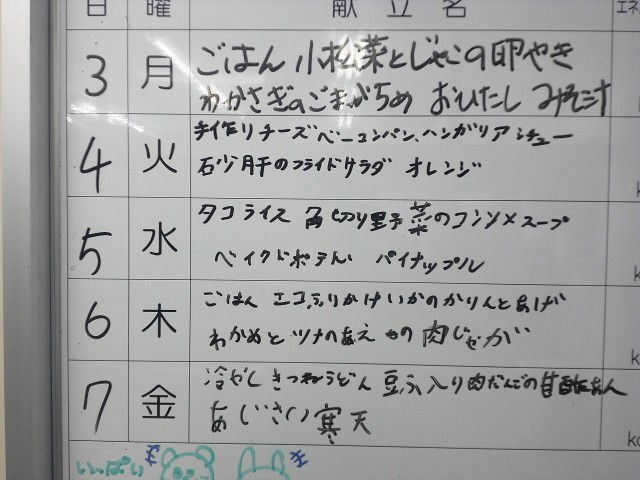 日 曜 献立名 エネ
3 月 ごはん 小松菜とじゃこの卵やき
わかさぎのごまがらめ おひたし みそ汁
4 火 手作りチーズベーコンパン、ハンガリアシチュー
石少肝のフライドサラダ オレンジ
5 水 タコライス 角切り野菜のコンソメスープ
ベイクドポテト パイナップル
6 木 ごはん エコふりかけ いかのかりんとあげ
わかめとツナのあえもの 肉じゃが
7 金 冷やしきつねうどん 豆ふ入り肉だんごの甘酢あん
あじさい寒天
いっぱい